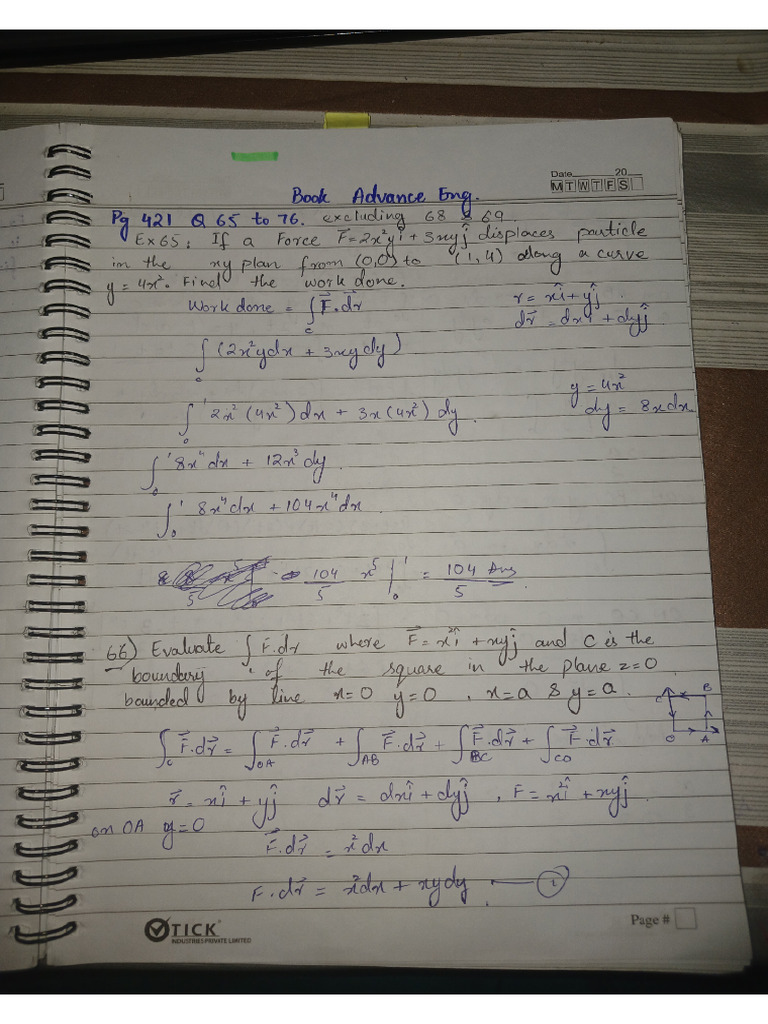 Date 20
M T W T F S
Book Advance Eng.
Pg 421 Q 65 to 76. excluding 68 & 69.
Ex65: If a Force F⃗=2x²yî + 3xyĵ displaces particle
in the xy plan from (0,0) to (1,4) along a curve
y = 4x². Find the work done.
Work done = ∫c F⃗.dr⃗ r = xî+yĵ
dr⃗ = dxî + dyĵ
∫c (2x²ydx + 3xydy)
y = 4x²
∫₀¹ 2x²(4x²)dx + 3x(4x²)dy. dy = 8xdx
∫₀¹ 8x⁴dx + 12x³dy.
∫₀¹ 8x⁴dx + 104x⁴dx.
104/5 x⁵|₀¹ = 104/5 Ans
66) Evaluate ∫c F⃗.dr where F⃗= x²î +xyĵ and C is the
boundary of the square in the plane z=0
bounded by line x=0 y=0, x=a & y=a.
C B
O A
∫c F⃗.dr⃗ = ∫OA F⃗.dr⃗ + ∫AB F⃗.dr⃗ + ∫BC F⃗.dr⃗ + ∫CO F⃗.dr⃗
r⃗ = xî + yĵ dr⃗ = dxî + dyĵ, F = x²î + xyĵ
on OA y=0
F⃗.dr⃗ = x²dx
F.dr⃗ = x²dx + xydy
TICK
INDUSTRIES PRIVATE LIMITED
Page #